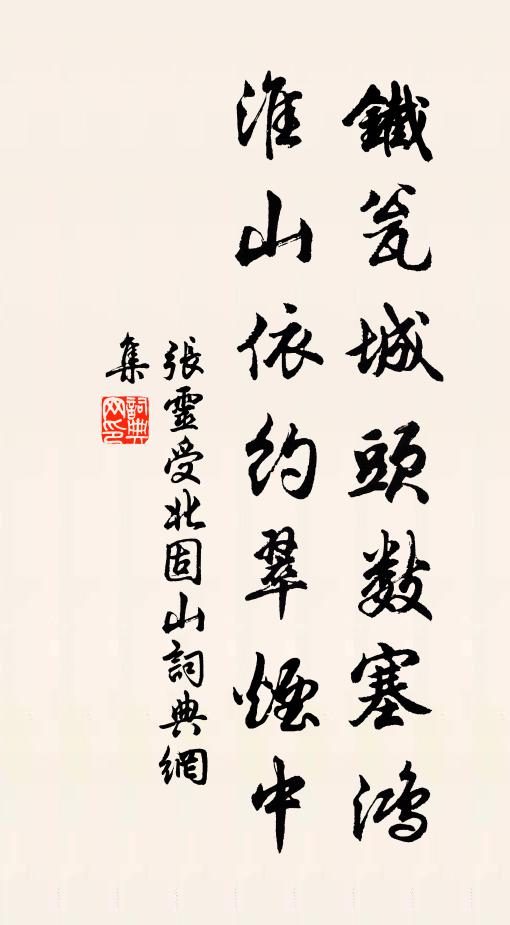 鐵瓮城頭數塞鴻
淮山依約翠煙中
張靈受北固山詞典網
集
詞典網印